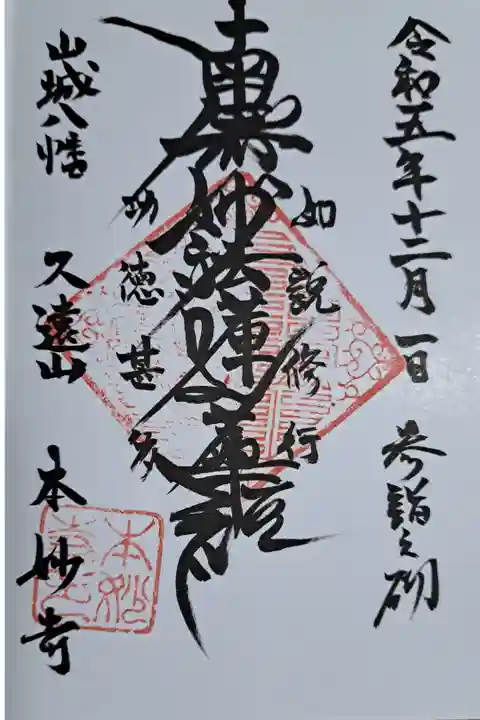 令和五年十二月一日 参詣之砌
如説修行
南無妙法蓮華経
功徳甚多
山城八幡 久遠山 本妙寺